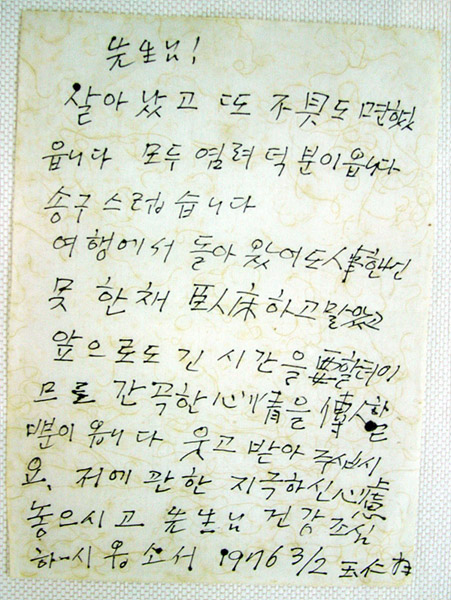 先生님!
살아 났고 또 不具도 면했
읍니다 모두 염려 덕분이옵니다
송구스럽습니다
여행에서 돌아 왔어도 人事한번
못 한채 臥床하고 말았고
앞으로도 긴 시간을 要할터이
므로 간곡한 心情을 傳할
뿐이옵니다 웃고 받아 주십시
요. 저에 관한 지극하신 心慮
놓으시고 先生님 건강 조심
하시옵소서 1976 3/2 玉仁